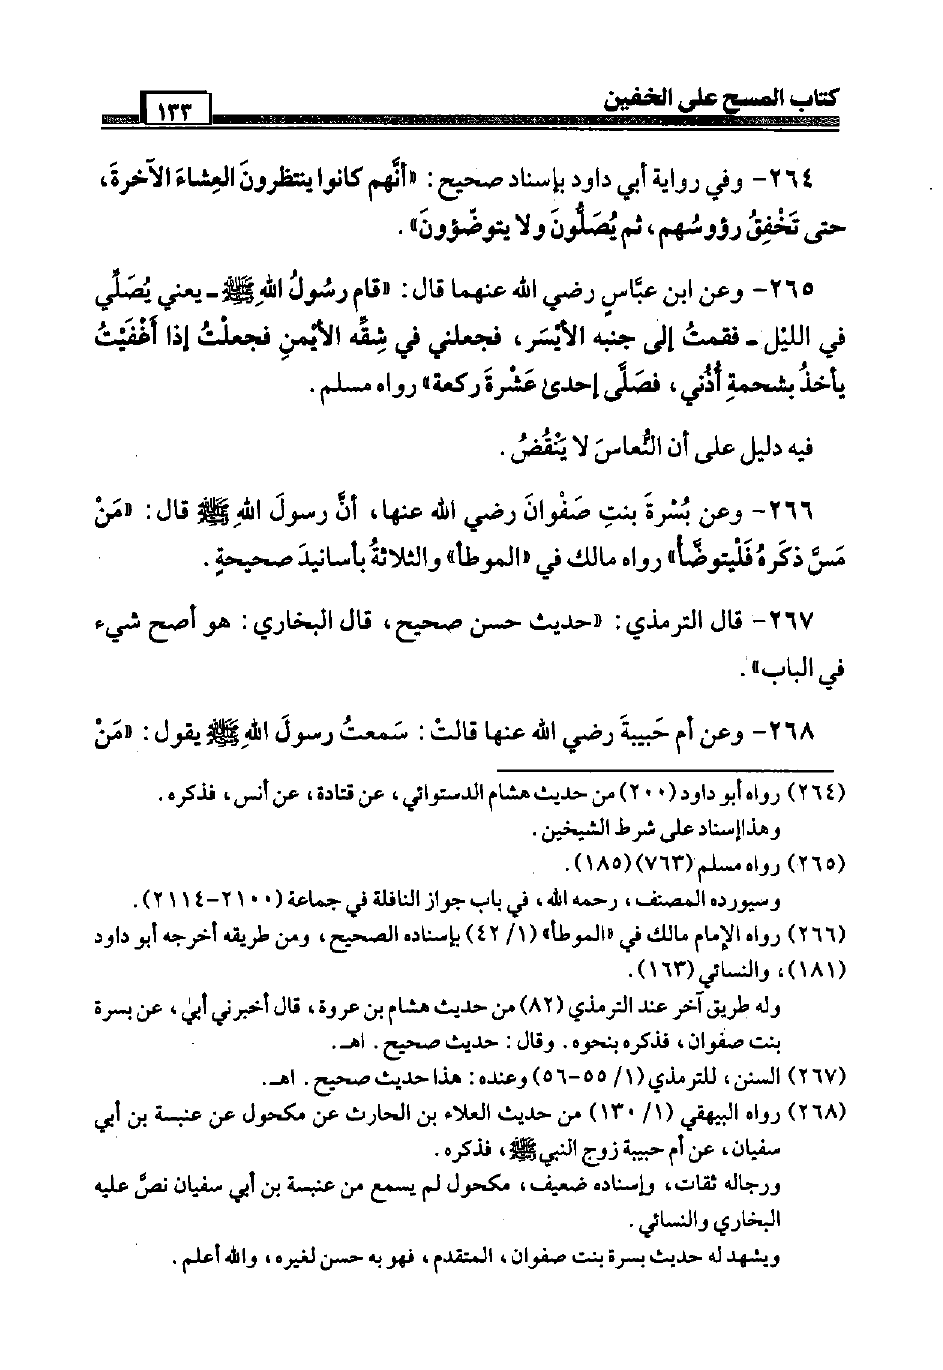 كتاب المسح على الخفين
١٣٣
٢٦٤- وفي رواية أبي داود بإسناد صحيح: «أنَّهم كانوا ينتظرونَ العِشاءَ الآخرةَ،
حتى تَخْفِقُ رؤوسُهم، ثم يُصَلُّونَ ولا يتوضّؤونَ».
٢٦٥- وعن ابن عبَّاسٍ رضي الله عنهما قال: «قام رسُولُ اللهِ ﷺ ـ يعني يُصَلِّي
في الليْل ـ فقمتُ إلى جنبه الأيْسَر، فجعلني في شِقِّه الأيْمنِ فجعلْتُ إذا أغْفَيْتُ
يأخذُ بشحمةِ أُذُني، فصَلَّى إحدىٰ عَشْرةَ ركعة» رواه مسلم.
فيه دليل على أن النُّعاسَ لا يَنْقُضُ.
٢٦٦- وعن بُسْرةَ بنتِ صَفْوانَ رضي الله عنها، أنَّ رسولَ اللهِ ﷺ قال: «مَنْ
مَسَّ ذكَرهُ فَلْيتوضَّأ» رواه مالك في «الموطأ» والثلاثةُ بأسانيدَ صحيحةٍ.
٢٦٧- قال الترمذي: «حديث حسن صحيح، قال البخاري: هو أصح شيء
في الباب».
٢٦٨- وعن أم حَبيبةَ رضي الله عنها قالتْ: سَمعتُ رسولَ اللهِ ﷺ يقول: «مَنْ
(٢٦٤) رواه أبو داود (٢٠٠) من حديث هشام الدستوائي، عن قتادة، عن أنس، فذكره.
وهذا إسناد على شرط الشيخين.
(٢٦٥) رواه مسلم (٧٦٣) (١٨٥).
وسيورده المصنف، رحمه الله، في باب جواز النافلة في جماعة (٢١٠٠-٢١١٤).
(٢٦٦) رواه الإمام مالك في «الموطأ» (١/ ٤٢) بإسناده الصحيح، ومن طريقه أخرجه أبو داود
(١٨١)، والنسائي (١٦٣).
وله طريق آخر عند الترمذي (٨٢) من حديث هشام بن عروة، قال أخبرني أبي، عن بسرة
بنت صفوان، فذكره بنحوه. وقال: حديث صحيح. اهـ.
(٢٦٧) السنن، للترمذي (١/ ٥٥-٥٦) وعنده: هذا حديث صحيح. اهـ.
(٢٦٨) رواه البيهقي (١/ ١٣٠) من حديث العلاء بن الحارث عن مكحول عن عنبسة بن أبي
سفيان، عن أم حبيبة زوج النبي ﷺ، فذكره.
ورجاله ثقات، وإسناده ضعيف، مكحول لم يسمع من عنبسة بن أبي سفيان نصَّ عليه
البخاري والنسائي.
ويشهد له حديث بسرة بنت صفوان، المتقدم، فهو به حسن لغيره، والله أعلم.